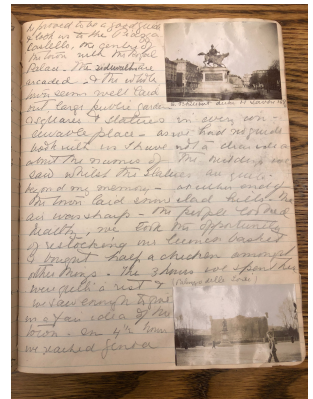 he proved to be a good guide
& took us to the Piazza
Castello, the centre of
the town with the Royal
Palace - the sidewalks are
arcaded - & the whole
town seems well laid
out large public gardens
& squares & statues in every con-
ceivable place - as we had no guide
book with us I have not a clear idea
about the names of the buildings we
saw whilst the statues are quite
beyond my memory - at either end of
the town lie snow clad hills - the
air was sharp - the people looked
healthy, we took the opportunity
of restocking our luncheon basket
& bought half a chicken amongst
other things - the 3 hours we spent here
were quite a rest &
we saw enough to give
us a fair idea of the
town - in 4 hours
we reached Genoa